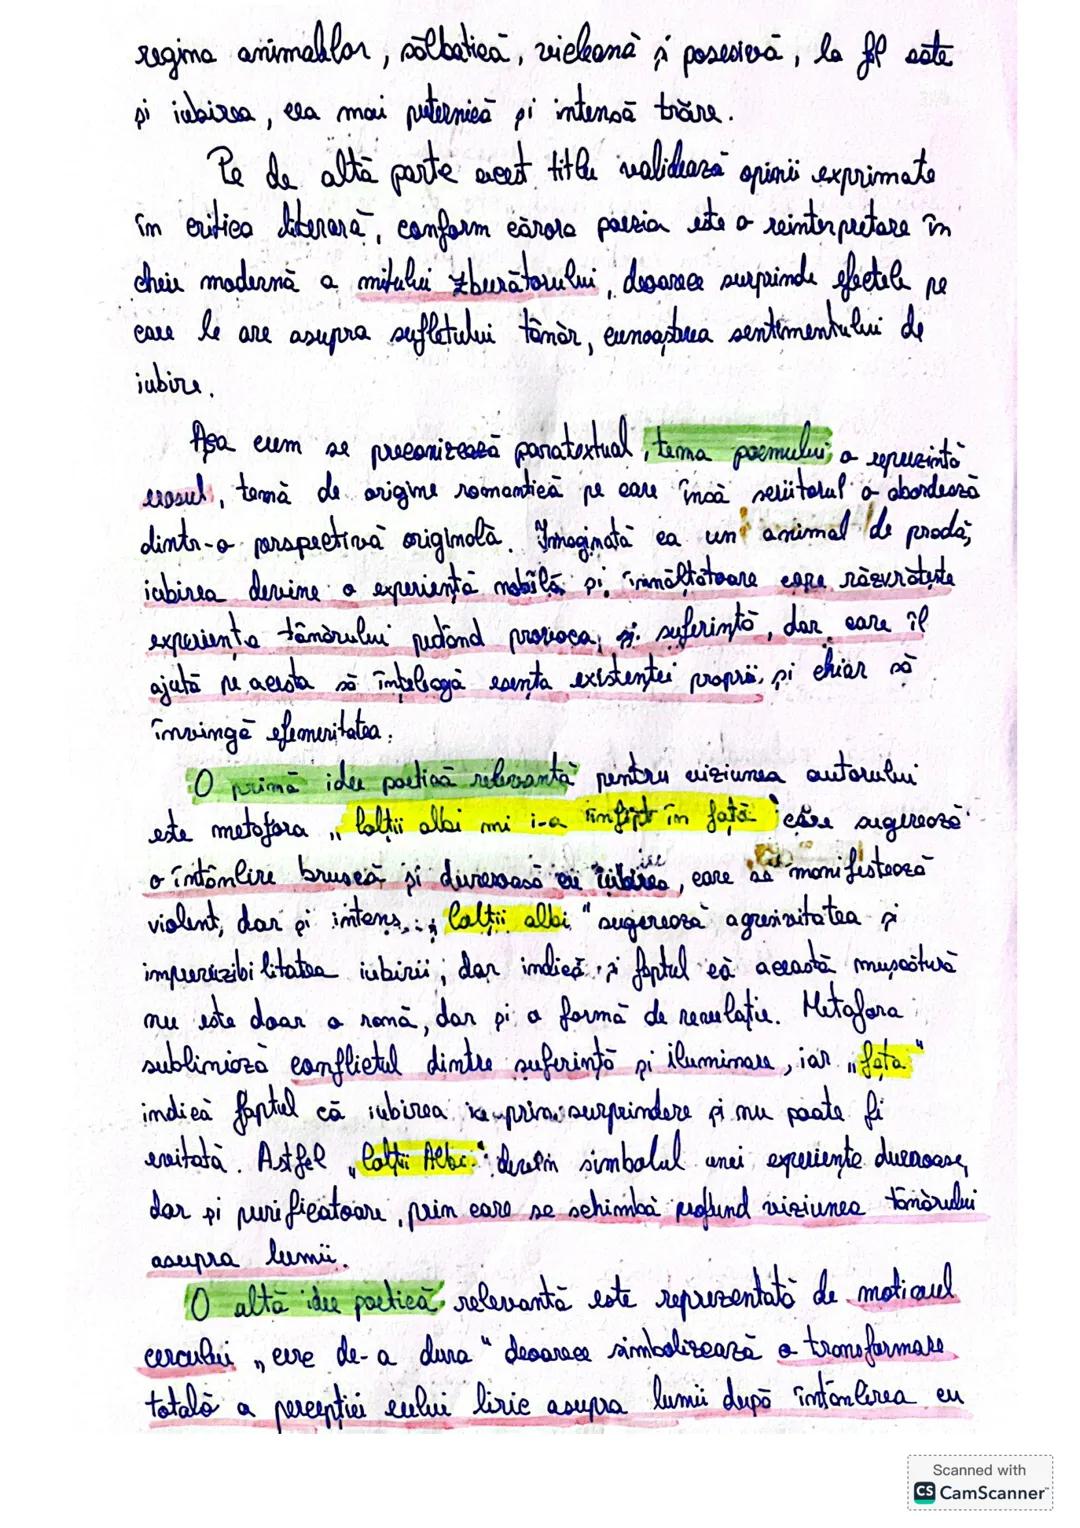 regina animalelor, sălbatică, vicleană și posesivă, la fel este
și iubirea, cea mai puternică și intensă trăire.
Pe de altă parte acest titlu validează opinii exprimate
în critica literară, conform cărora poezia este o reinterpretare în
cheie modernă a mitului zburătorului, deoarece surprinde efectele pe
care le are asupra sufletului tânăr, cunoașterea sentimentului de
iubire.
Așa cum se preconizează paratextual, tema poemului o reprezintă
erosul, temă de origine romantică pe care însă scriitorul o abordează
dintr-o perspectivă originală. Imaginată ca un animal de pradă,
iubirea devine o experiență nobilă și înnălțătoare care răzvrătește
experiența tânărului putând provoca și suferință, dar care îl
ajută pe acesta să înțeleagă esența existenței proprii, și chiar să
învingă efemeritatea.
O primă idee poetică relevantă pentru viziunea autorului
este metafora „Colții albi mi i-a înfipt în față" care sugerează
o întâlnire bruscă și dureroasă cu iubirea, care se manifestează
violent, dar și intens. „Colții albi" sugerează agresivitatea și
imprevizibilitatea iubirii, dar indică și faptul că această mușcătură
nu este doar o rană, dar și o formă de revelație. Metafora
subliniază conflictul dintre suferință și iluminare, iar „fața"
indică faptul că iubirea prin surprindere și nu poate fi
evitată. Astfel „Colții Albi" devin simbolul unei experiențe dureroase,
dar și purificatoare, prin care se schimbă profund viziunea tânărului
asupra lumii.
O altă idee poetică relevantă este reprezentată de motivul
cercului „cerc de-a dura" deoarece simbolizează o transformare
totală a percepției eului liric asupra lumii după întâlnirea cu
Scanned with
CS CamScanner